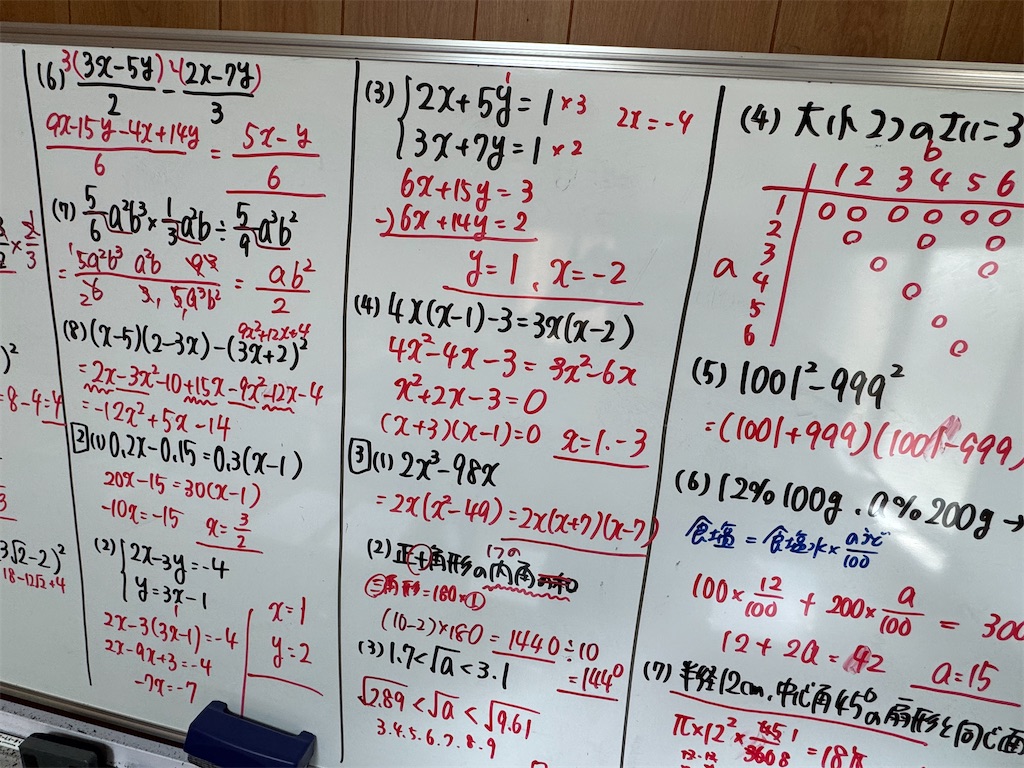 ×2/3
)²
=8-4=4
3√2-2)²
18-12√2+4
(6) 3(3x-5y)/2 - 4(2x-7y)/3
9x-15y-4x+14y/6 = 5x-y/6
(7) 5/6a²b³×1/3a²b÷5/9a³b²
= 5a²b³ a²b 9/6 3 5a³b² = ab²/2
9x²+12x+4
(8)(x-5)(2-3x)-(3x+2)²
=2x-3x²-10+15x-9x²-12x-4
=-12x²+5x-14
2(1)0.2x-0.15=0.3(x-1)
20x-15=30(x-1)
-10x=-15 x=3/2
(2){2x-3y=-4
y=3x-1
2x-3(3x-1)=-4
2x-9x+3=-4
-7x=-7
x=1
y=2
(3){2x+5y=1 ×3 2x=-4
3x+7y=1 ×2
6x+15y=3
-)6x+14y=2
y=1、x=-2
(4)4x(x-1)-3=3x(x-2)
4x²-4x-3=3x²-6x
x²+2x-3=0
(x+3)(x-1)=0 x=1.-3
3(1)2x³-98x
=2x(x²-49)=2x(x+7)(x-7)
(2)正十角形の1つの内角
三角形=180×①
(10-2)×180=1440÷10
=144°
(3)1.7<√a<3.1
√2.89<√a<√9.61
3.4.5.6.7.8.9
(4)大小2つのさいころ
b
1 2 3 4 5 6
1 ○ ○ ○ ○ ○ ○
2 ○ ○ ○
3 ○ ○
a 4 ○
5 ○
6 ○
(5)1001²-999²
=(1001+999)(1001-999)
(6)12%100g、a%200g→
食塩=食塩水×a%/100
100×12/100+200×a/100=300
12+2a=42 a=15
(7)半径12cm、中心角45°の扇形と同じ面
π×12²×45/360 1/8=18π